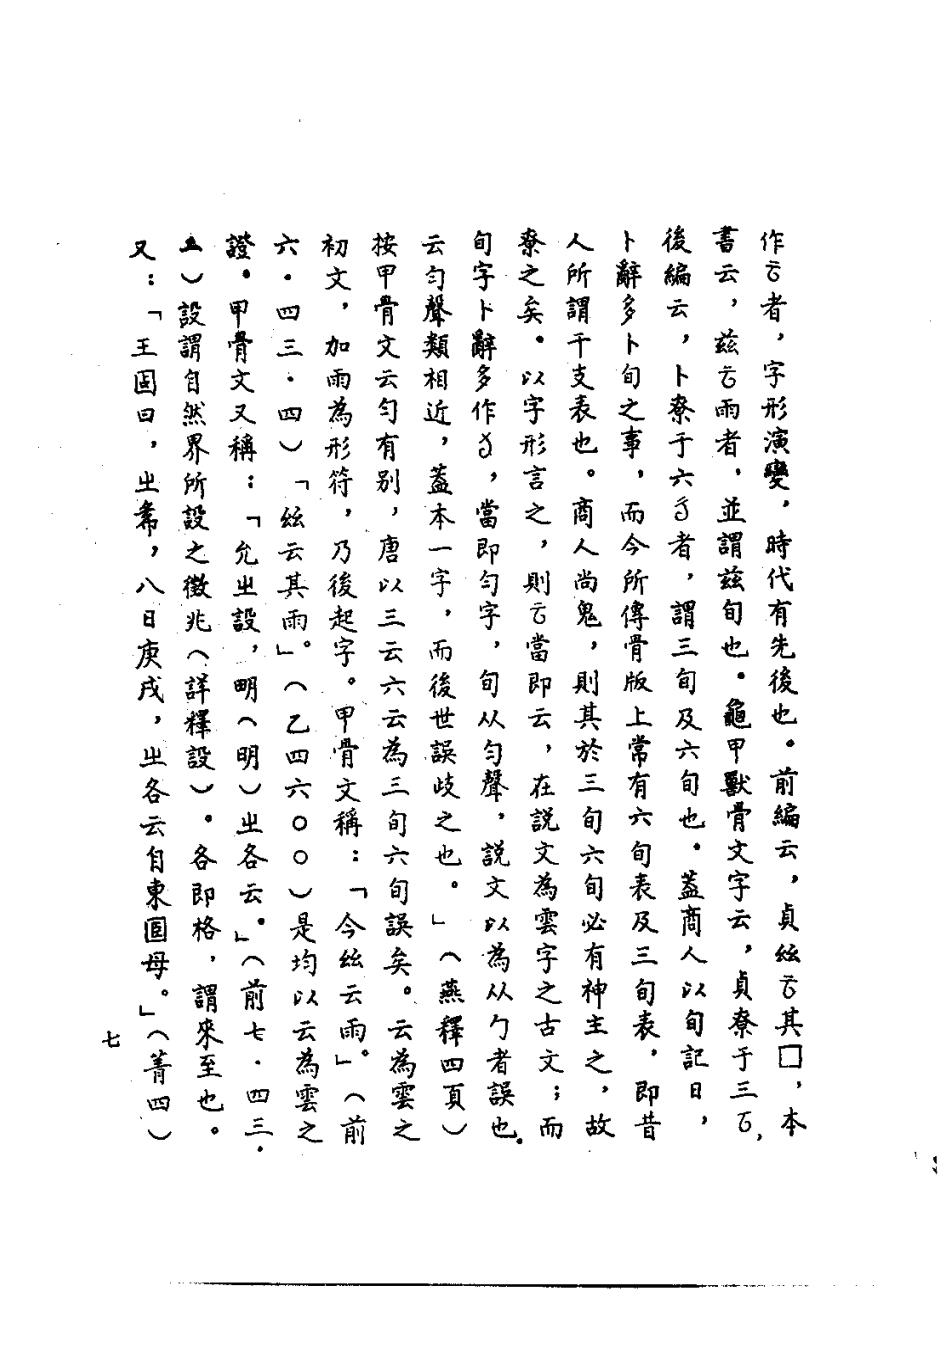 作云者，字形演變，時代有先後也。前編云，貞絲云其□，本
書云，茲云雨者，並謂茲旬也。龜甲獸骨文字云，貞尞于三云，
後編云，卜尞于六者，謂三旬及六旬也。蓋商人以旬記日，
卜辭多卜旬之事，而今所傳骨版上常有六旬表及三旬表，即昔
人所謂干支表也。商人尚鬼，則其於三旬六旬必有神主之，故
尞之矣。以字形言之，則云當即云，在説文為雲字之古文；而
旬字卜辭多作，當即勻字，旬从勻聲，説文以為从勹者誤也。
云勻聲類相近，蓋本一字，而後世誤歧之也。」（燕釋四頁）
按甲骨文云勻有别，唐以三云六云為三旬六旬誤矣。云為雲之
初文，加雨為形符，乃後起字。甲骨文稱：「今絲云雨。」（前
六．四三．四）「絲云其雨」。（乙四六〇〇）是均以云為雲之
證。甲骨文又稱：「允㞢設，明（明）㞢各云。」（前七．四三．
二）設謂自然界所設之徵兆（詳釋設）。各即格，謂來至也。
又：「王固曰，㞢希，八日庚戌，㞢各云自東母。」（菁四）
七